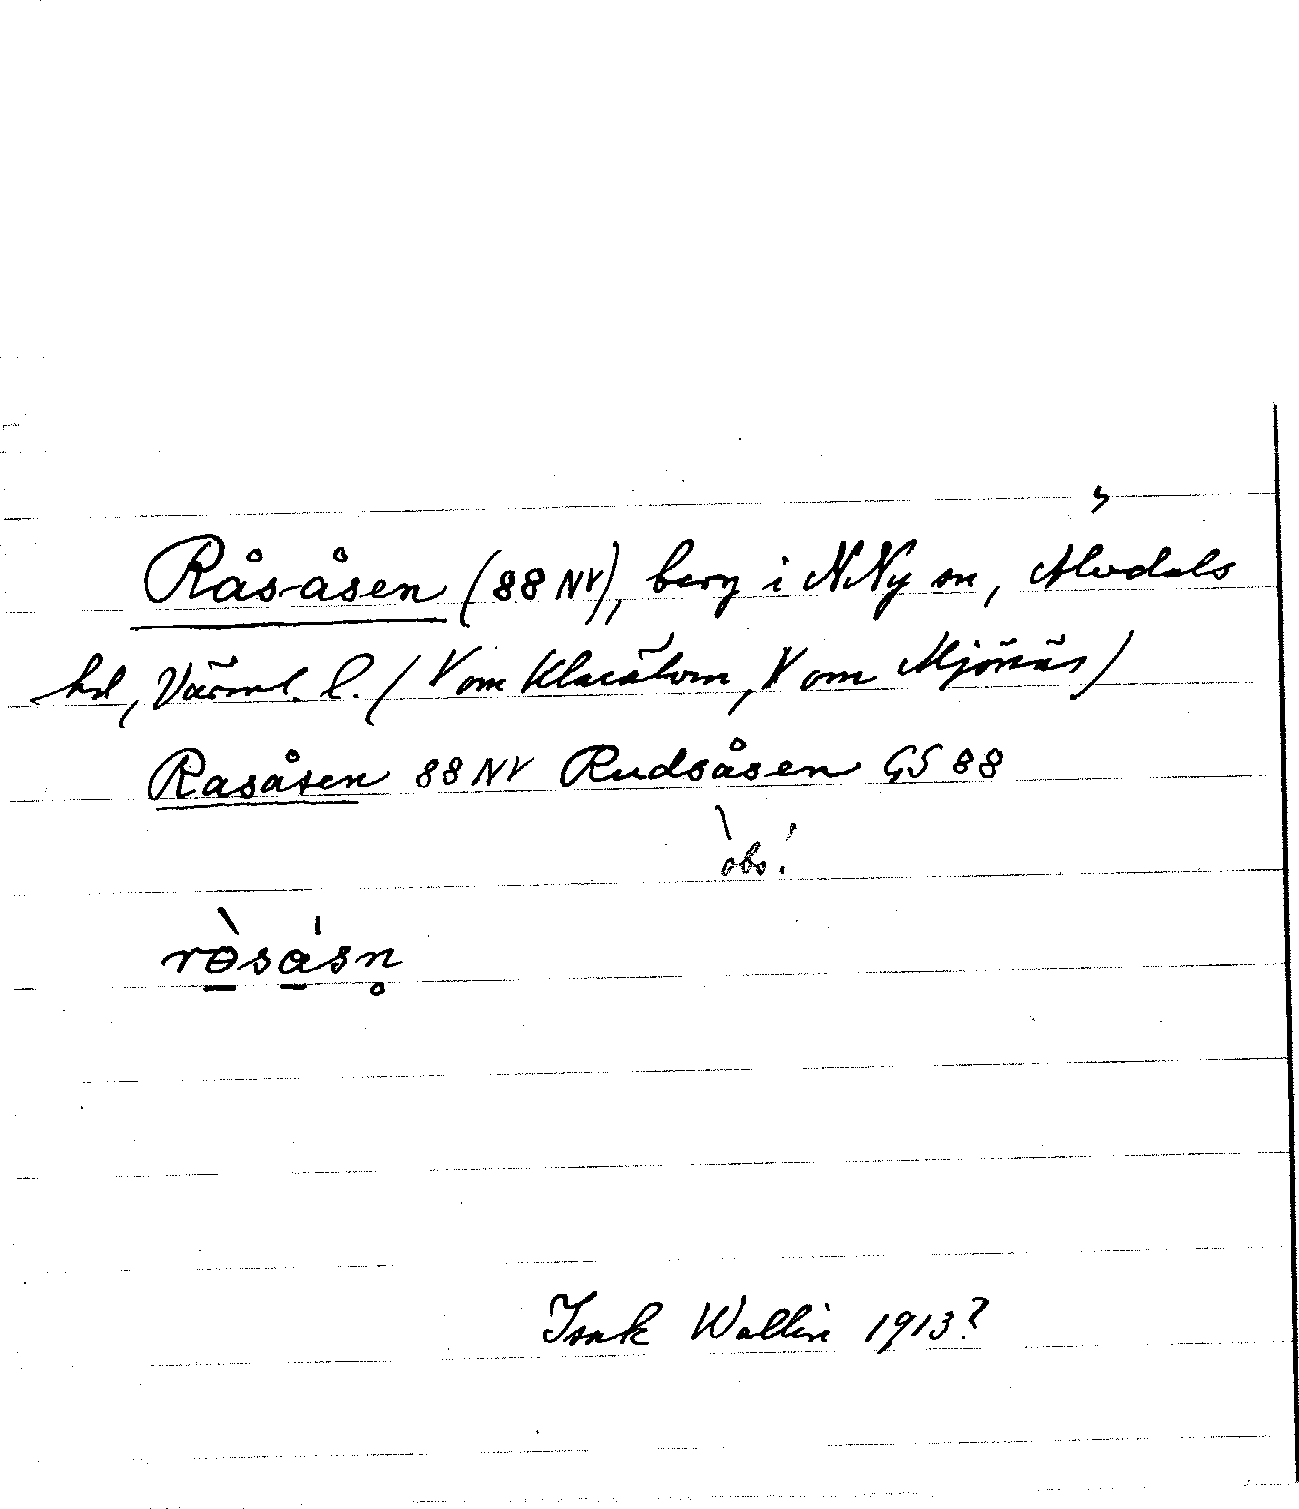 Råsåsen (88 NV), berg i N. Ny sn, Älvdals
hd, Värml. l. (V om Klarälven, V om Mjönäs)
Rasåsen 88 NV Rudsåsen GS 88
obs!
rɵ̀sɑ́sn̥
Isak Wallin 1913?